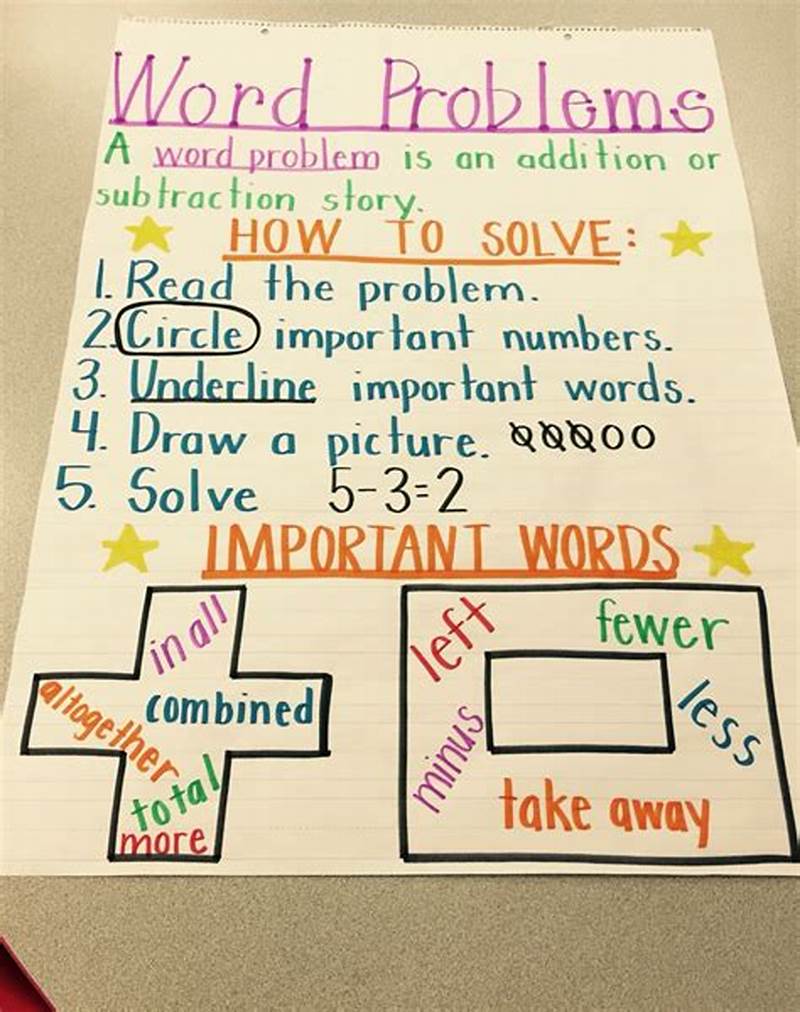 Word Problems
A word problem is an addition or
subtraction story.
HOW TO SOLVE:
1. Read the problem.
2. Circle important numbers.
3. Underline important words.
4. Draw a picture.
5. Solve 5-3=2
IMPORTANT WORDS
in all
altogether
combined
total
more
left
fewer
minus
less
take away